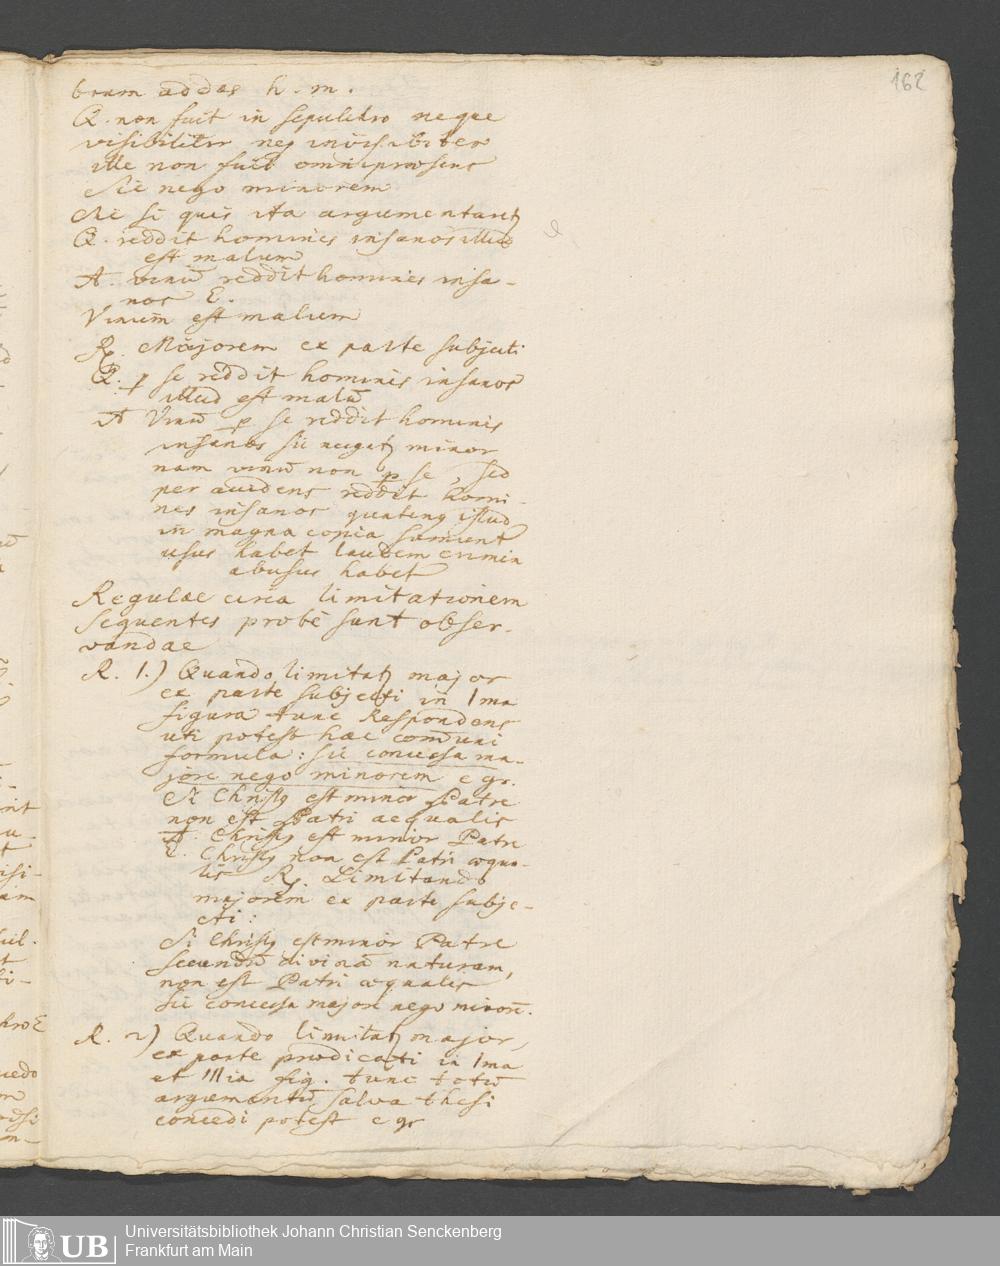 162
brum addas h. m.
Q. non fuit in sepulchro neque
visibiliter neq invisibiliter
ille non fuit omnipraesens
Sic nego minorem
Ac si quis ita argumentaretz
Q. reddit homines insanos illud
est malum
A. vinū reddit homines insa-
nos E.
Vinum est malum
R. Majorem ex parte subjecti
Q. p se reddit homines insanos
illud est malū
A Vinū p se reddit homines
insanos sic negatz minor
nam vinū non p se, sed
per accidens reddit homi-
nes insanos quatenq istud
in magna copia sumunt
usus habet laudem crimen
abusus habet
Regulae circa limitationem
sequentes probè sunt obser-
vandae
R. 1.) Quando limitatz major
ex parte subjecti in Ima
figura tunc Respondens
uti potest hac com̄uni
formula: sic concessa ma-
jore nego minorem e gr.
Si Christq est minor Patre
non est Patri aequalis
A. Christq est minor Patre
E. Christq non est Patri aequa-
lis R. Limitando
majorem ex parte subje-
cti:
Si Christq est minor Patre
secundū divinā naturam,
non est Patri aequalis
sic concessa majore nego minorē.
R. 2) Quando limitatz major,
ex parte praedicati in Ima
et IIIia fig. tunc totū
argumentū, salva thesi
concedi potest e gr
UB
Universitätsbibliothek Johann Christian Senckenberg
Frankfurt am Main